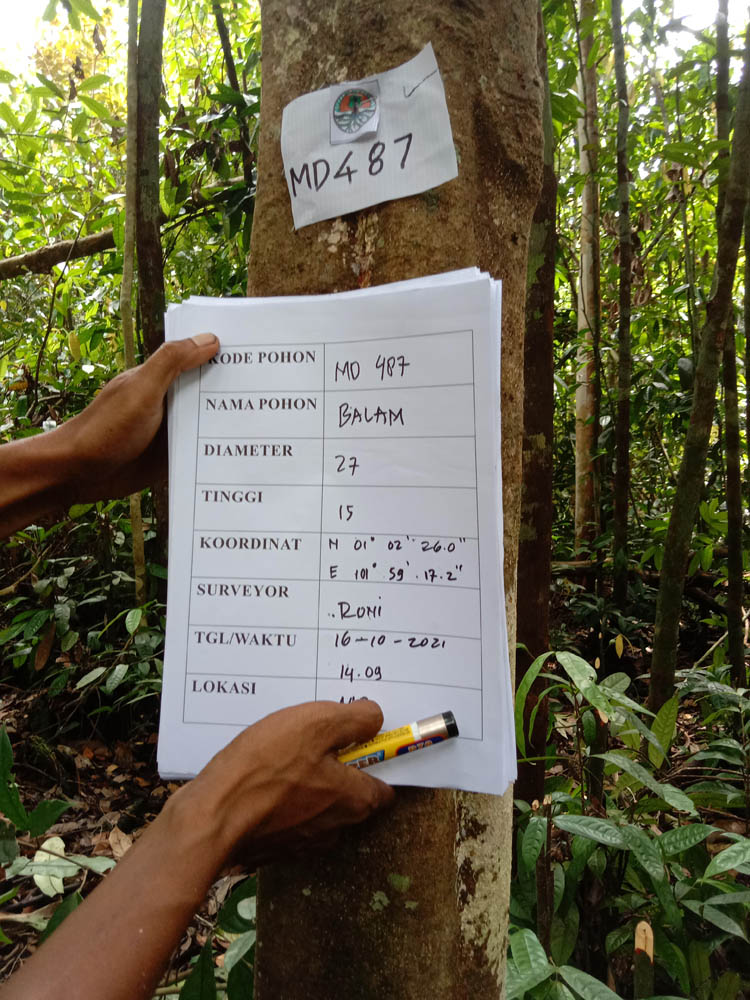 MD487
KODE POHON MD 487
NAMA POHON BALAM
DIAMETER 27
TINGGI 15
KOORDINAT N 01° 02' 26.0"
E 101° 59' 17.2"
SURVEYOR ..RONI
TGL/WAKTU 16-10-2021
14.09
LOKASI